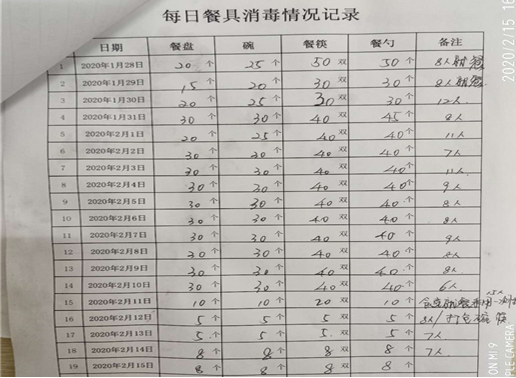 每日餐具消毒情况记录
日期 餐盘 碗 餐筷 餐勺 备注
1 2020年1月28日 20个 25个 50双 50个 8人
2 2020年1月29日 15个 20个 30双 30个 8人
3 2020年1月30日 20个 25个 30双 30个 12人
4 2020年1月31日 30个 30个 40双 45个 8人
5 2020年2月1日 20个 25个 40双 40个 11人
6 2020年2月2日 30个 30个 40双 40个 7人
7 2020年2月3日 30个 30个 40双 40个 11人
8 2020年2月4日 30个 30个 40双 40个 9人
9 2020年2月5日 30个 30个 40双 40个 8人
10 2020年2月6日 30个 30个 40双 40个 8人
11 2020年2月7日 30个 30个 40双 40个 9人
12 2020年2月8日 30个 30个 40双 40个
13 2020年2月9日 30个 30个 40双 40个 8人
14 2020年2月10日 30个 30个 40双 40个 6人
15 2020年2月11日 10个 10个 20双 10个
16 2020年2月12日 5个 5个 5双 5个 8人/打包 筷
17 2020年2月13日 5个 5个 5双 5个 7人
18 2020年2月14日 8个 8个 8双 8个 7人
19 2020年2月15日 8个 8个 8双 8个
2020/2/15 16
ON MI 9
PLE CAMERA